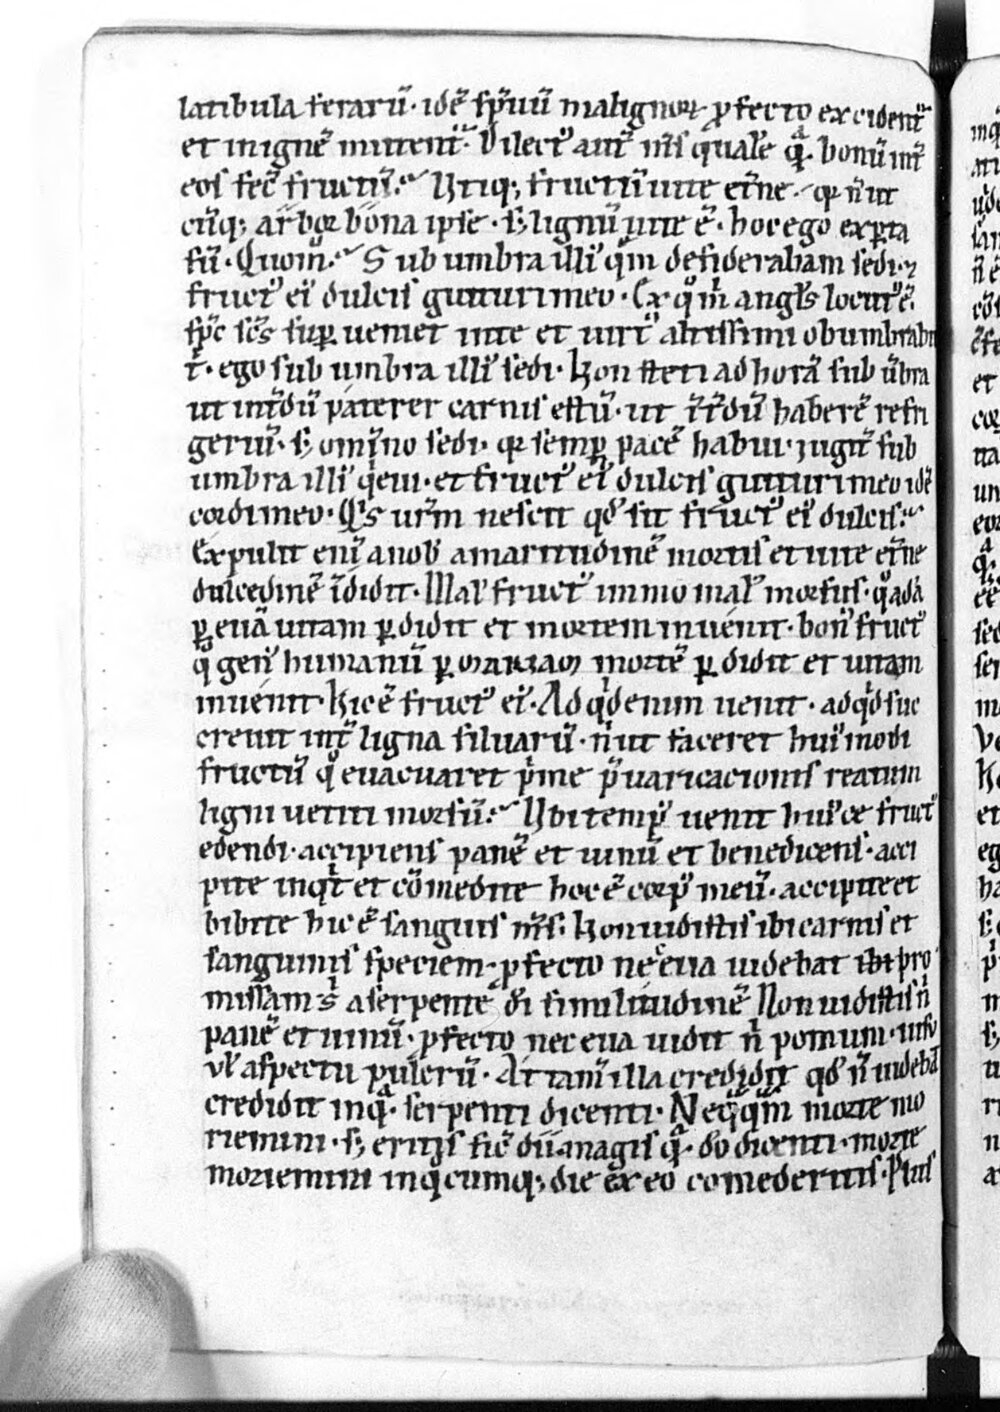 latibula ferarū· idē sp̄uū malignoꝝ ꝓfecto excidenť
et in ignē mittenť· Dilect᷒ aut̄ m̄s qualē q̄· bonū int̄
eos fec̄ fructū? Utiq; fructū uite et̄ne· qꝛ n̄ ut
cūq; arbor bona ipse· sꝫ lignū uite ē· hoc ego expta
sū· Quom̄? Sub umbra illi᷒ qͫ desiderabam sedi· ⁊
fruct᷒ ei᷒ dulcis gutturi meo· Ex quo m̄ angl̄s locut᷒ ē
sp̄c sc̄s supueniet in te et uirt᷒ altissimi obumbrabit
t̄· ego sub umbra illi᷒ sedi· Non steti ad horā sub ūbra
ut int̄dū paterer carnis estū· ut int̄dū haberē refri
geriū· sꝫ omīno sedi· qꝛ semꝑ pacē habui· iugit̄ sub
umbra illi᷒ q̄eui· et fruct᷒ ei᷒ dulcis gutturi meo idē
cordi meo· Qis ur̄m nescit qd̄ sit fruct᷒ ei᷒ dulcis?
Expulit eni᷒ a nob᷒ amaritudinē mortis et uite et̄ne
dulcedinē īdidit· Mal᷒ fruct᷒ immo mal᷒ morsus· quo adā
ꝑ euā uitam ꝑdidit et mortem inuenit· bon᷒ fruct᷒
quo gen᷒ humanū ꝑ mariam mortē ꝑdidit et uitam
inuenit· Hic ē fruct᷒ ei᷒· Ad qid enim uenit· ad qid suc
creuit int̄ ligna siluarū· n̄ ut faceret hui᷒modi
fructū quo euacuaret pime p̄uaricacionis reatum
ligni uetiti morsū? Ubi temp᷒ uenit hui᷒ce fruct᷒
edendi· accipiens panē et uinū et benedicens· acci
pite inqit et cōmedite hoc ē corp᷒ meū· accipite et
bibite hic ē sanguis m̄s· Non uidistis ibi carnis et
sanguinis speciem· ꝓfecto nec eua uidebat ibi pro
missam s a serpente di similitudinē Non uidistis n
panē et uinū· ꝓfecto nec eua uidit n pomum· uisu
ul̄ aspectu pulcrū· At tam̄ illa credidit qd̄ n̄ uidebat
credidit inq̄· serpenti dicenti· Neqqͫ morte mo
riemini· sꝫ eritis sic̄ dii· magis q̄ do dicenti· morte
moriemini in qcumq; die ex eo comederitis· Plus